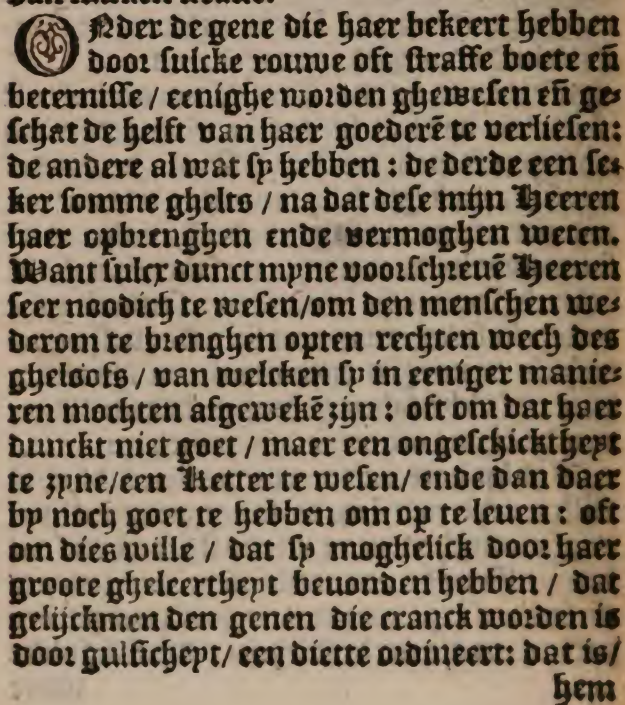 ONder de gene die haer bekeert hebben
door sulcke rouwe oft straffe boete eñ
beternisse / eenighe worden ghewesen eñ ge-
schat de helft van haer goederē te verliesen:
de andere al wat sy hebben : de derde een se-
ker somme ghelts / na dat dese mijn Heeren
haer opbrenghen ende vermoghen weten.
Want sulcx dunct myne voorschreuē Heeren
seer noodich te wesen/om den menschen we-
derom te brenghen opten rechten wech des
gheloofs / van welcken sy in eeniger manie-
ren mochten afgewekē zijn : oft om dat haer
dunckt niet goet / maer een ongeschicktheyt
te zyne/een Ketter te wesen/ ende dan daer
by noch goet te hebben om op te leuen : oft
om dies wille / dat sy moghelick door haer
groote gheleertheyt beuonden hebben / dat
gelijckmen den genen die cranck worden is
door gulsicheyt/ een diette ordineert: dat is/
hem